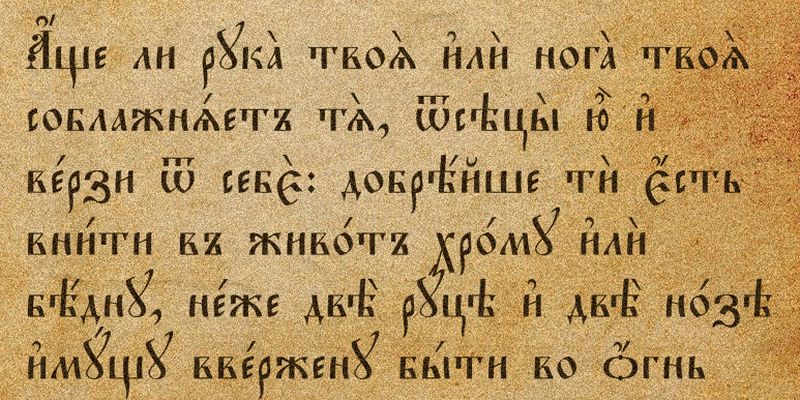 А҆́ще ли рꙋка̀ твоѧ̀ и҆лѝ нога̀ твоѧ̀
соблажнѧ́етъ тѧ̀, ѿсѣцы̀ ю҆̀ и҆
ве́рзи ѿ себє̀: добрѣ́йше тѝ є҆́сть
вни́ти въ живо́тъ хро́мꙋ и҆лѝ
бѣ́днꙋ, не́же двѣ̀ рꙋ́цѣ и҆ двѣ̀ но́зѣ
и҆мꙋ́щꙋ вве́рженꙋ бы́ти во ѻ҆́гнь